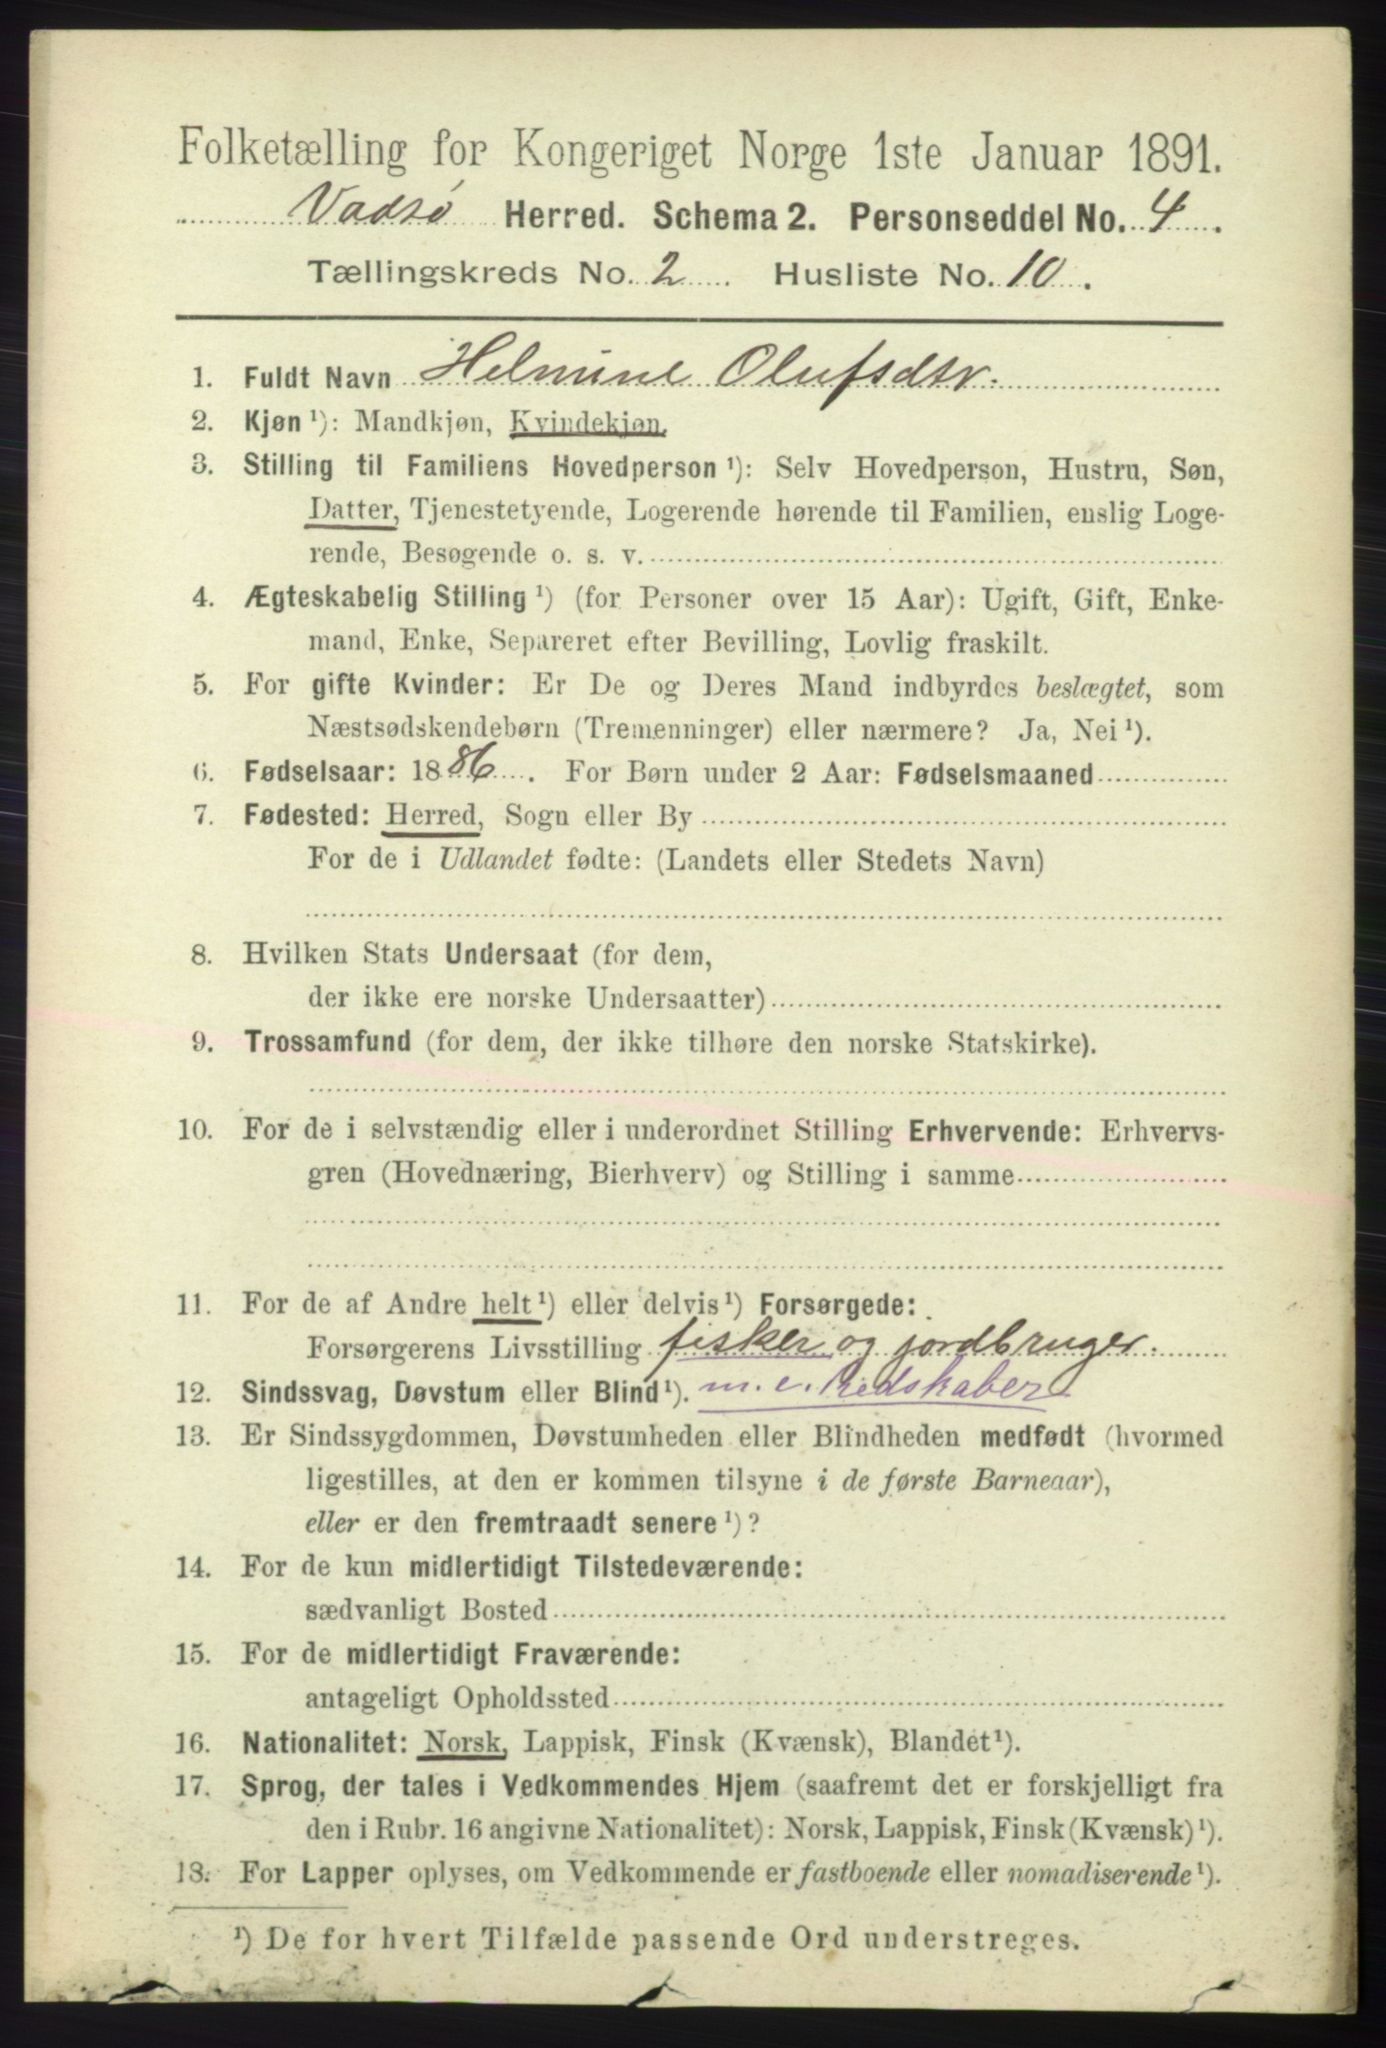 Folketælling for Kongeriget Norge 1ste Januar 1891.
Vadsø Herred. Schema 2. Personseddel No. 4.
Tællingskreds No. 2. Husliste No. 10.
1. Fuldt Navn Helmine Olufsdtr.
2. Kjøn ¹): Mandkjøn, Kvindekjøn.
3. Stilling til Familiens Hovedperson ¹): Selv Hovedperson, Hustru, Søn,
Datter, Tjenestetyende, Logerende hørende til Familien, enslig Loge-
rende, Besøgende o. s. v.
4. Ægteskabelig Stilling ¹) (for Personer over 15 Aar): Ugift, Gift, Enke-
mand, Enke, Separeret efter Bevilling, Lovlig fraskilt.
5. For gifte Kvinder: Er De og Deres Mand indbyrdes beslægtet, som
Næstsødskendebørn (Tremenninger) eller nærmere? Ja, Nei ¹).
6. Fødselsaar: 1886. For Børn under 2 Aar: Fødselsmaaned
7. Fødested: Herred, Sogn eller By
For de i Udlandet fødte: (Landets eller Stedets Navn)
8. Hvilken Stats Undersaat (for dem,
der ikke ere norske Undersaatter)
9. Trossamfund (for dem, der ikke tilhøre den norske Statskirke).
10. For de i selvstændig eller i underordnet Stilling Erhvervende: Erhvervs-
gren (Hovednæring, Bierhverv) og Stilling i samme
11. For de af Andre helt ¹) eller delvis ¹) Forsørgede:
Forsørgerens Livsstilling fisker og jordbruger.
12. Sindssvag, Døvstum eller Blind ¹). m. e. Redskaber
13. Er Sindssygdommen, Døvstumheden eller Blindheden medfødt (hvormed
ligestilles, at den er kommen tilsyne i de første Barneaar),
eller er den fremtraadt senere ¹)?
14. For de kun midlertidigt Tilstedeværende:
sædvanligt Bosted
15. For de midlertidigt Fraværende:
antageligt Opholdssted
16. Nationalitet: Norsk, Lappisk, Finsk (Kvænsk), Blandet ¹).
17. Sprog, der tales i Vedkommendes Hjem (saafremt det er forskjelligt fra
den i Rubr. 16 angivne Nationalitet): Norsk, Lappisk, Finsk (Kvænsk) ¹).
18. For Lapper oplyses, om Vedkommende er fastboende eller nomadiserende ¹).
¹) De for hvert Tilfælde passende Ord understreges.